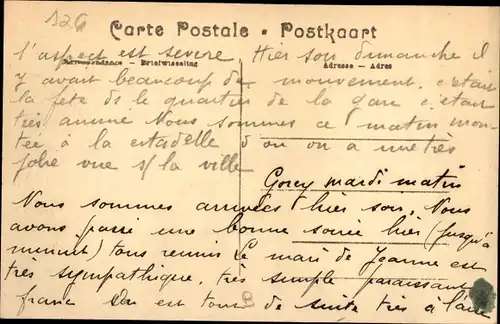 126
Carte Postale • Postkaart
Correspondance – Briefwisseling
Adresse – Adres
l'aspect est severe. Hier soir dimanche il
y avait beaucoup de mouvement, c'etait
la fete ds le quartier de la gare c'etait
très animé Nous sommes ce matin mon-
tée à la citadelle d'ou on a une très
jolie vue s/ la ville
Gorey mardi matin
Nous sommes arrivées hier soir. Nous
avons passé une bonne soirée hier (jusqu'à
minuit) tous reunis Le mari de Jeanne est
très sympathique, très simple paraissant
franc on est tout de suite très à l'aise